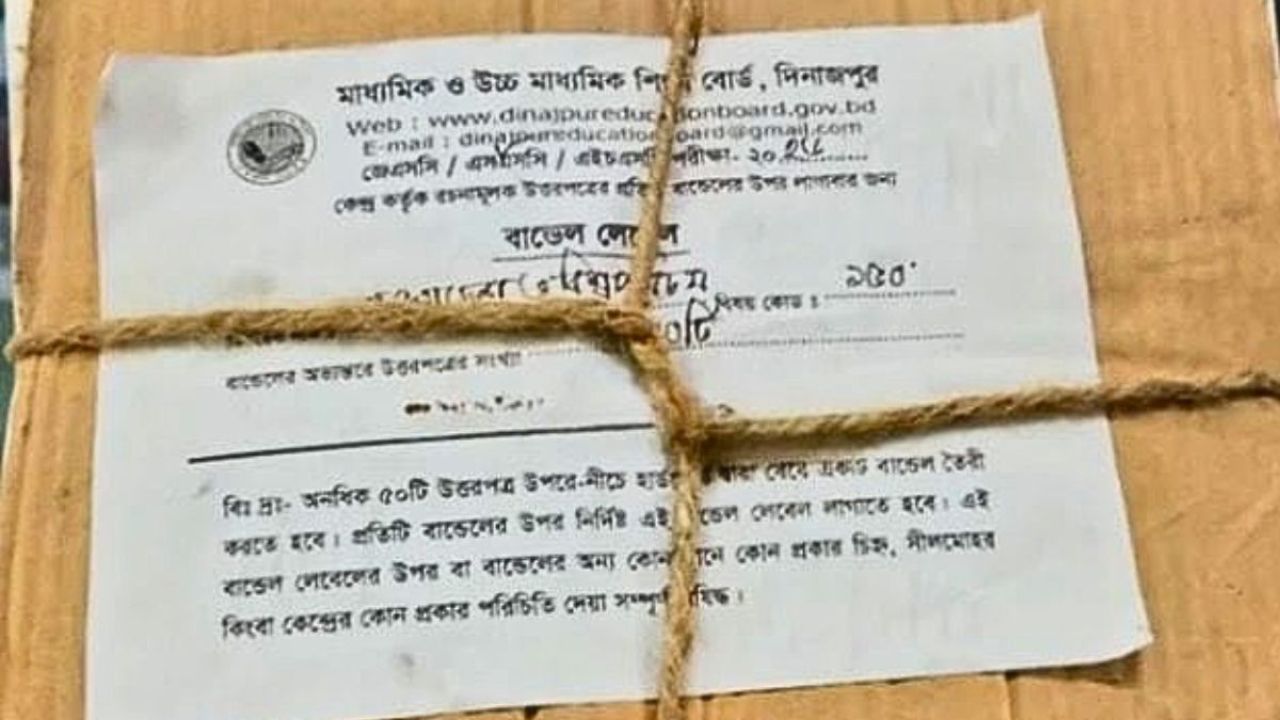 মাধ্যমিক ও উচ্চ মাধ্যমিক বোর্ড, দিনাজপুর
Web : www.dinajpureduc onboard.gov.bd
E-mail : dinajpureducatio oard@gmail.com
জেএসসি / এসএসসি / এইচএসসি পরীক্ষা- ২০
কেন্দ্র কর্তৃক রচনামূলক উত্তরপত্রের প্রতি বান্ডেলের উপর লাগাবার জন্য
বান্ডেল
বিষয় কোড : ১৫০
টি
বান্ডেলের অভ্যন্তরে উত্তরপত্রের সংখ্যা
বিঃ দ্রঃ- অনধিক ৫০টি উত্তরপত্র উপরে-নীচে দ্বারা বেধে একটি বান্ডেল তৈরী
করতে হবে। প্রতিটি বান্ডেলের উপর নির্দিষ্ট এই লেবেল লাগাতে হবে। এই
বান্ডেল লেবেলের উপর বা বান্ডেলের অন্য কোন কোন প্রকার চিহ্ন, সীলমোহর
কিংবা কেন্দ্রের কোন প্রকার পরিচিতি দেয়া